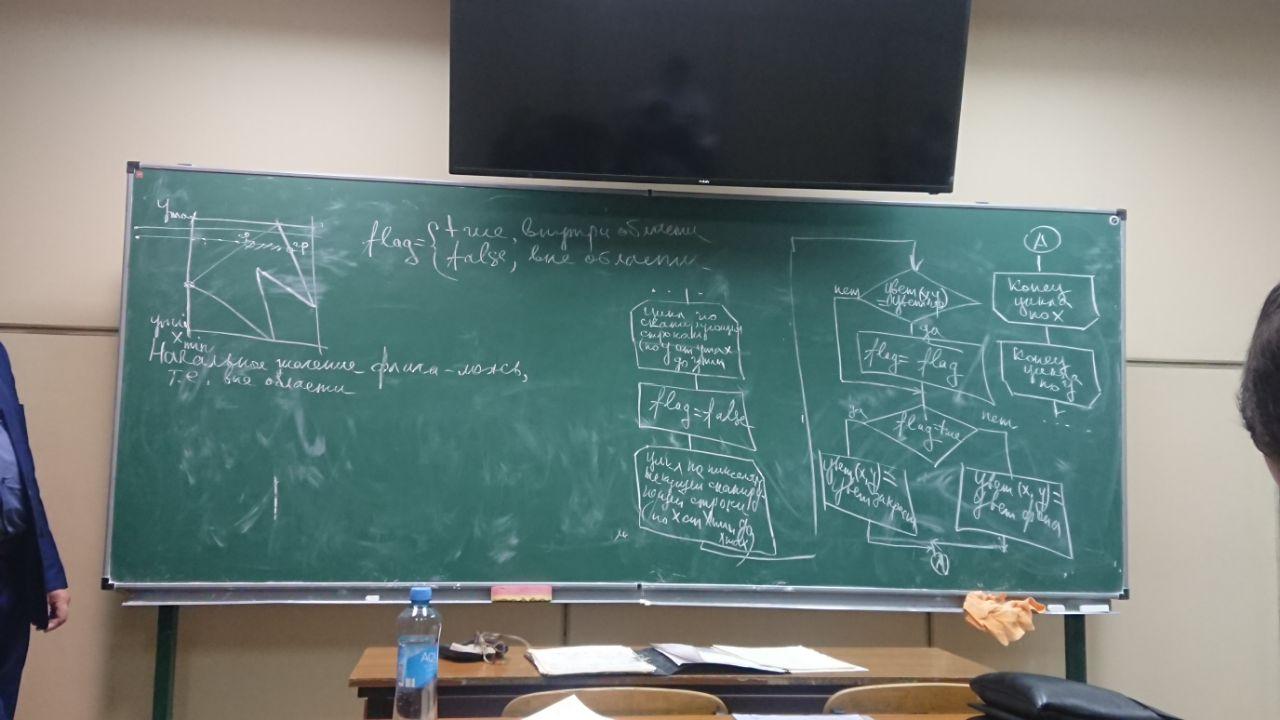 y max
flag = { true, внутри области
false, вне области
y min
x min
Начальное значение флага - ложь,
т.е. вне области
Цикл по
сканирующим
строкам
(по y от y max
до y min
flag = false
Цикл по пикселям
текущей сканиру-
ющей строки
(по x от x min до
x max)
нет
цвет(x,y)
да
flag = flag
да
flag=true
нет
цвет(x,y)=
цвет закраски
цвет(x,y)=
цвет фона
A
A
Конец
цикла
по x
Конец
цикла
по y